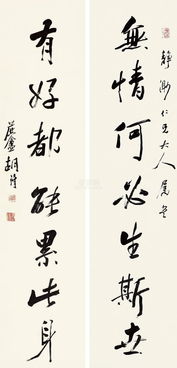 靜仁兄大人屬
無情何必生斯世
有好都能累此身
盦胡